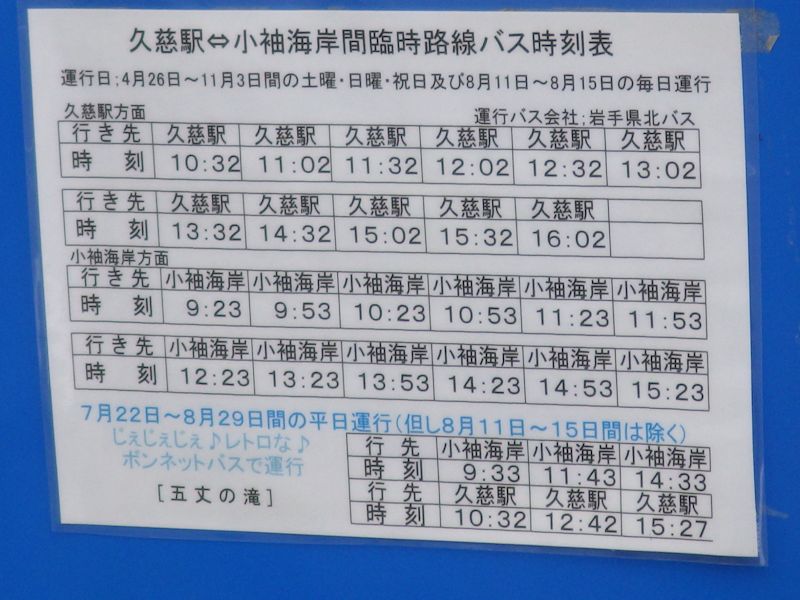 久慈駅⇔小袖海岸間臨時路線バス時刻表
運行日;4月26日～11月3日間の土曜・日曜・祝日及び8月11日～8月15日の毎日運行
久慈駅方面 運行バス会社;岩手県北バス
行き先 久慈駅 久慈駅 久慈駅 久慈駅 久慈駅 久慈駅
時刻 10:32 11:02 11:32 12:02 12:32 13:02
行き先 久慈駅 久慈駅 久慈駅 久慈駅 久慈駅
時刻 13:32 14:32 15:02 15:32 16:02
小袖海岸方面
行き先 小袖海岸 小袖海岸 小袖海岸 小袖海岸 小袖海岸 小袖海岸
時刻 9:23 9:53 10:23 10:53 11:23 11:53
行き先 小袖海岸 小袖海岸 小袖海岸 小袖海岸 小袖海岸 小袖海岸
時刻 12:23 13:23 13:53 14:23 14:53 15:23
7月22日～8月29日間の平日運行(但し8月11日～15日間は除く)
じぇじぇじぇ♪レトロな♪
ボンネットバスで運行
[五丈の滝]
行先 小袖海岸 小袖海岸 小袖海岸
時刻 9:33 11:43 14:33
行先 久慈駅 久慈駅 久慈駅
時刻 10:32 12:42 15:27